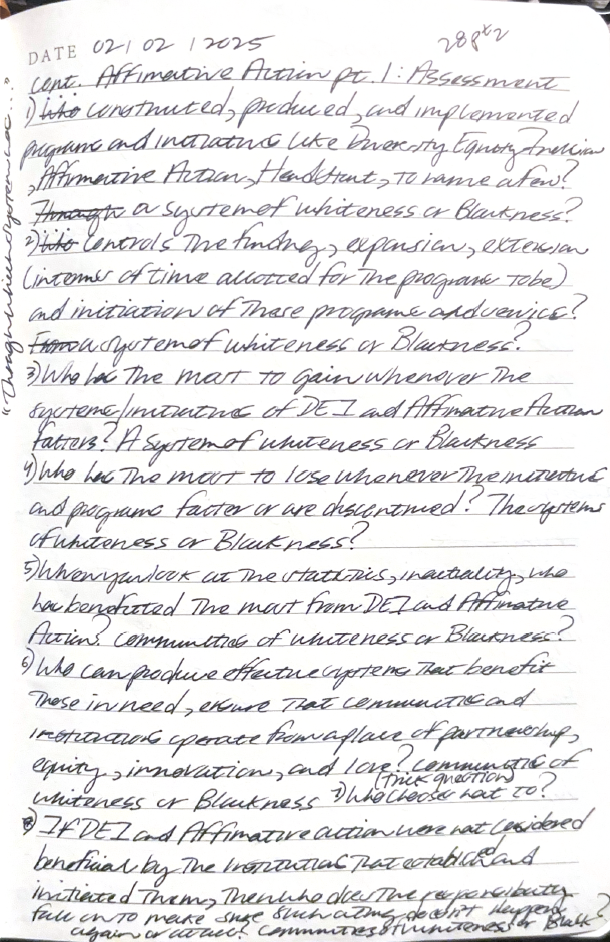 DATE 02/02/2025
28pt2
cont. Affirmative Action pt. 1: Assessment
1) Who constructed, produced, and implemented
programs and initiatives like Diversity Equity Inclusion
, Affirmative Action, Head Start, to name a few?
Through a system of whiteness or Blackness?
2) Who controls the funding, expansion, extension
(in terms of time allotted for the programs to be)
and initiation of these programs and service?
From a system of whiteness or Blackness?
3) Who has the most to gain whenever the
systems/initiatives of DEI and Affirmative Action
falters? A system of whiteness or Blackness
4) Who has the most to lose whenever the initiatives
and programs falter or are discontinued? The systems
of whiteness or Blackness?
5) When you look at the statistics, in actuality, who
has benefitted the most from DEI and Affirmative
Action? Communities of whiteness or Blackness?
6) Who can produce effective systems that benefit
those in need, ensure that communities and
institutions operate from a place of partnership,
equity, innovation, and love? Communities of
whiteness or Blackness (trick question) 7) Who chooses not to?
8) If DEI and Affirmative action were not considered
beneficial by the institutions that established and
initiated them, then who does the responsibility
fall on to make sure such doesn't happen
again or at all? Communities of whiteness or Black?
"Through whiteness system